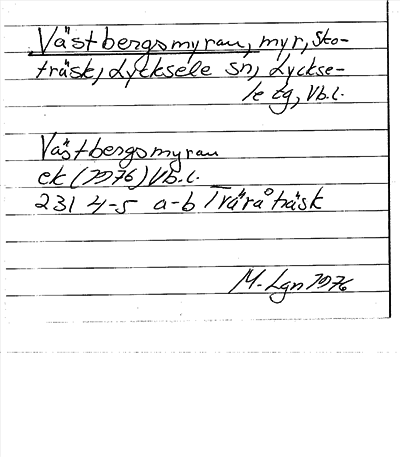 Västbergsmyran, myr, Sko-
träsk, Lycksele sn, Lyckse-
le tg, Vb.l.
Västbergsmyran
ek (1976) Vb.l.
231 4-5 a-b Träråträsk
M. Lgn 1976